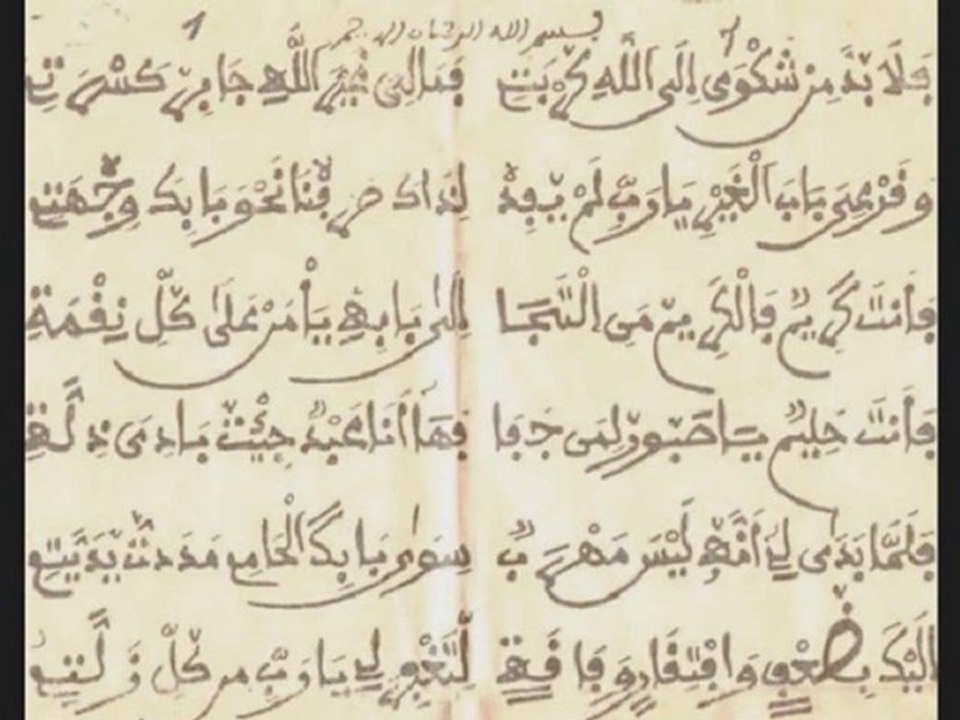 بسم الله الرحمان الرحيم
فَلَا بُدَّ مِن شَكْوَى إِلَى اللَّهِ كُرْبَتِي فَمَا لِي غَيْرَ اللَّهِ جَابِرُ كَسْرَتِي
وَقَرْعِي بَابَ الْغَيْرِ يَا رَبِّ لَمْ يُفِدْ لِذَاكَ صَرَفْنَا نَحْوَ بَابِكَ وِجْهَتِي
فَأَنتَ كَرِيمٌ فَالْكَرِيمُ مَنِ الْتَجَا إِلَى بَابِهِ يَأْمَنْ عَلَى كُلِّ نِقْمَةِ
فَأَنتَ حَلِيمٌ يَا صَبُورُ لِمَن جَفَا فَهَا أَنَا عَبْدٌ جِئْتُ بَادِى ذِلَّةِ
فَلَمَّا بَدَى لِي أَنَّهُ لَيْسَ مَهْرَبٌ سِوَى بَابِكَ الْحَامِي مَدَدتُّ يَدَيَّتِي
إِلَيْكَ بِضُعْفِي وَافْتِقَارِي وَفَاقَةِ لِتَغْفِرَ لِي يَا رَبِّ مِن كُلِّ زَلَّتِي